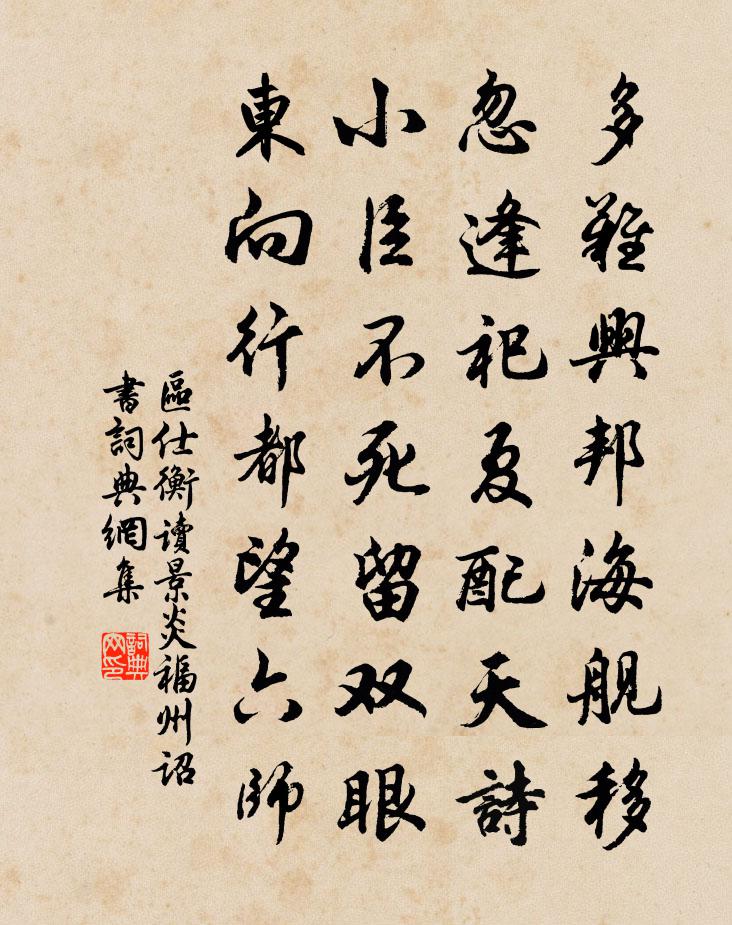 多難興邦海舰移
忽逢祀夏配天詩
小臣不死留双眼
東向行都望六師
區仕衡讀景炎福州詔
書詞典網集
詞典网印